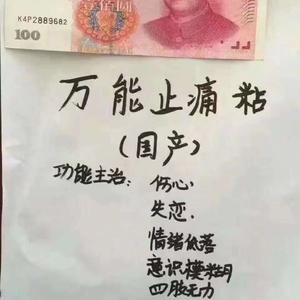 K4P2889682
100
万能止痛粘
(国产)
功能主治：伤心
失恋.
情绪低落
意识模糊
四肢无力